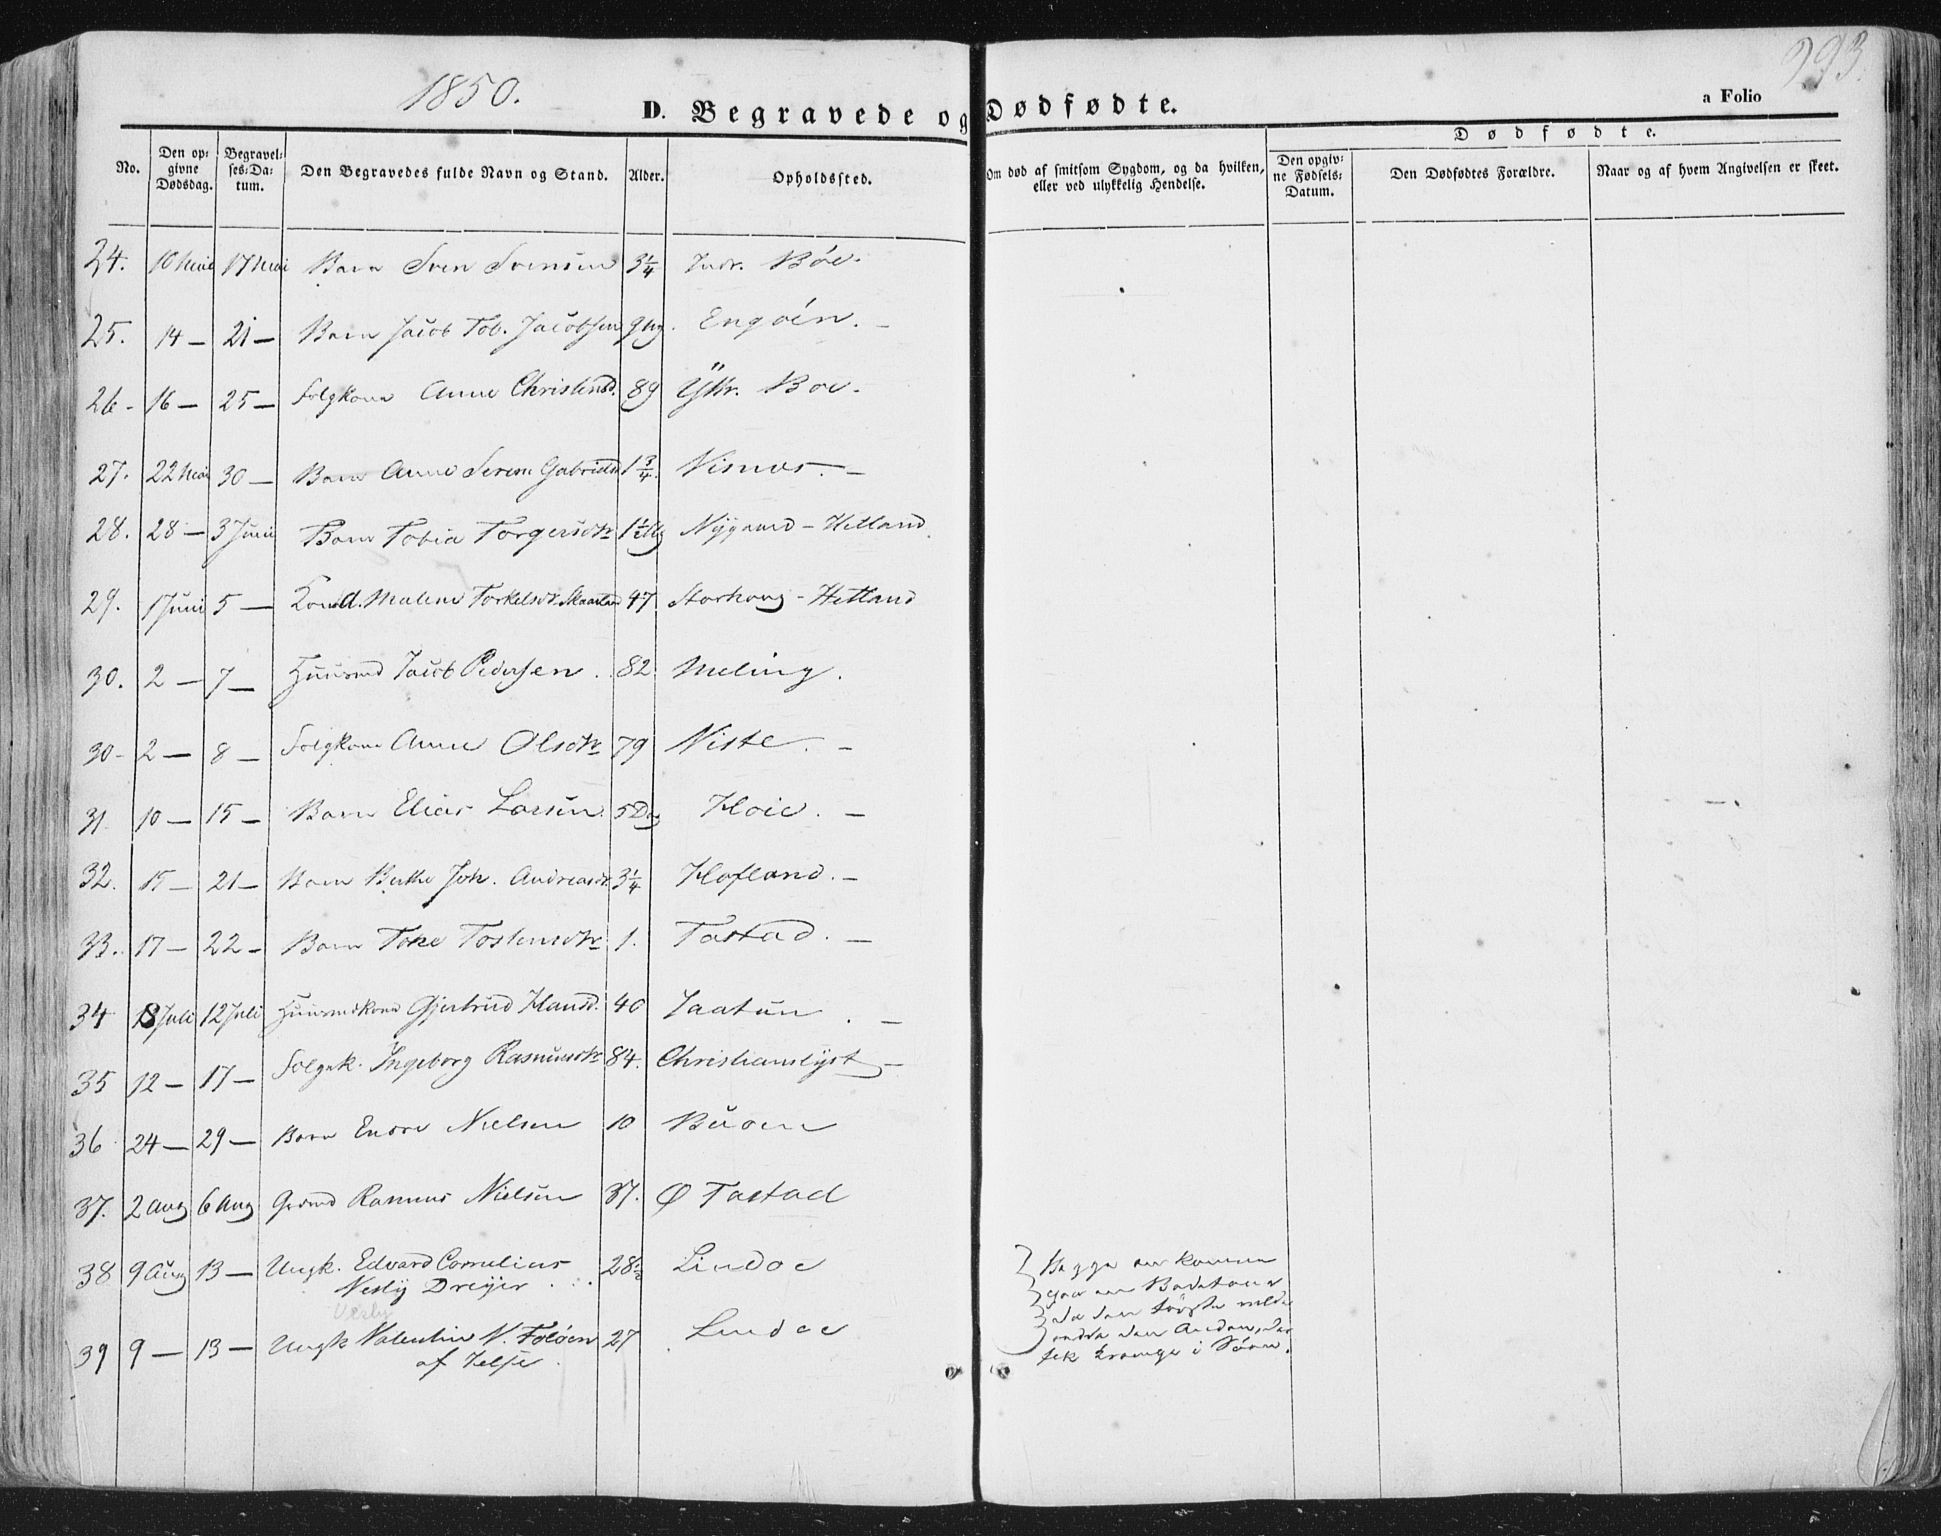 1850.
D. Begravede og Dødfødte.
a Folio
293.
No.
Den op-
givne
Dødsdag.
Begravel-
ses-Da-
tum.
Den Begravedes fulde Navn og Stand.
Alder.
Opholdssted.
Om død af smitsom Sygdom, og da hvilken,
eller ved ulykkelig Hendelse.
Dødfødte.
Den opgiv-
ne Fødsels-
Datum.
Den Dødfødtes Forældre.
Naar og af hvem Angivelsen er skeet.
24. 10 Mai 17 Mai Barn Sven Svensen 3¼ Indr. Bøe.
25. 14 — 21 — Barn Jacob Tob. Jacobsen 9 Engøen. —
26 - 16 — 25 — Folgkone Anne Christensd. 89 Yttr. Boe.
27. 22 Mai 30 — Barn Anne Serene Gabrielsd 1¾. Visnes. —
28. 28 — 3 Juni Barn Tobia Torgersdtr 1½ Nygaard - Hetland
29. 1 Juni 5 — Malene Torkelsdr. Skaarland 47 Storhoug - Hetland
30. 2 — 7 — Huusmd Jacob Pedersen. 82. Meling.
30 - 2 — 8 — Folgkone Anne Olsdtr 79 Viste. —
31 10 — 15 — Barn Elias Larsen. 5 Dag Hoie. —
32. 15 — 21 — Barn Berthe Joh. Andreasdt. 3¼ Hafland. —
33. 17 — 22 — Barn Toke Tostensdtr 1. Tastad. —
34 8 Juli 12 Juli Huusmdkone Gjertrud Hansd. 40 Jaatun. —
35 12 — 17 — Folgek. Ingeborg Rasmusdtr 84. Christianslyst —
36 24 — 29 — Barn Endre Nielsen 10 Buoen
37. 2 Aug 6 Aug Grdmd Rasmus Nielsen 37. Ø Tastad
38 9 Aug 13 — Ungk. Edvard Cornelius 28½ Lindoe
Vesly Dreyer . . .
Vesly
39 9 — 13 — Ungk Valentin N. Foløen 27 Lindoe
af Jelse.
Begge
den Anden, der
fik Krampe i Søen.